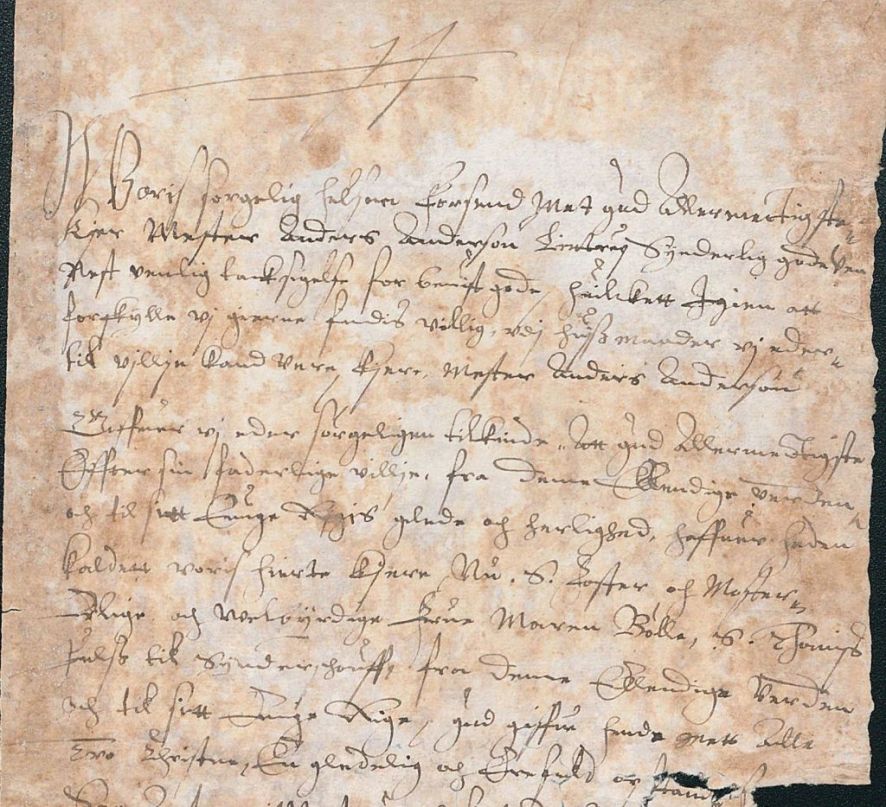 Voris sorgelig helsen forsend met gud Allermectigste
Kjer Mester Anders Anderson Synderlig gode Ven
Nest venlig tacksigelse for beuist gode, huilckett Igien att
forskylle vj gierne findis villig, vdj huiss maader vj eder
til villje kand vere, kjere, Mester Anders Anderson
Giffuer vj eder sørgeligen tilkinde, Att gud Allermectigste
Effter sin faderlige villje, fra denne Elendige verden
och til sitt Euige Rigis glede och herlighed, haffuer heden
kaldett voris hierte kjere, Nu, S. Søster och Moster
Erlige och Velbyrdige Frue Maren Bølle, S. Thomis
Julss til Synderschouff, fra denne Ellendige verden
och til sitt Euige Rige, gud giffue hende mett Alle
tro Christne, En gledelig och Ærefuld opstandelse